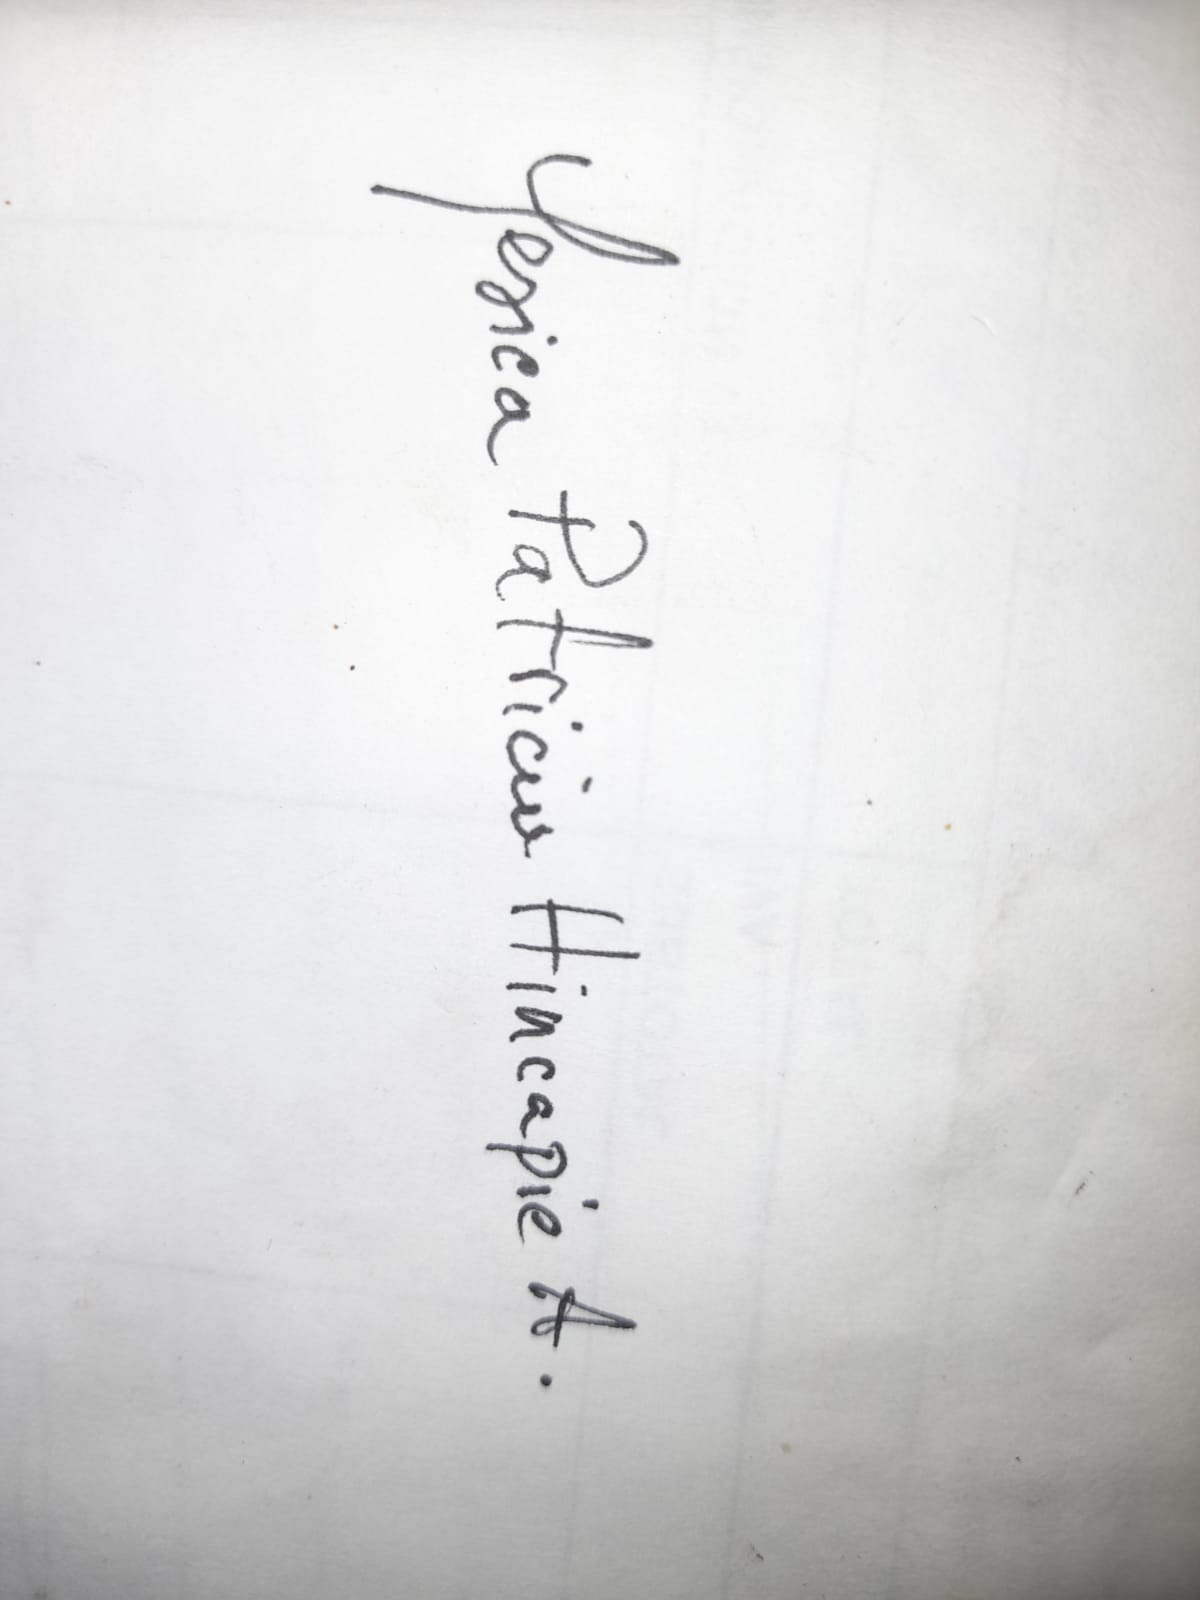 Yesica Patricia Hincapie A.